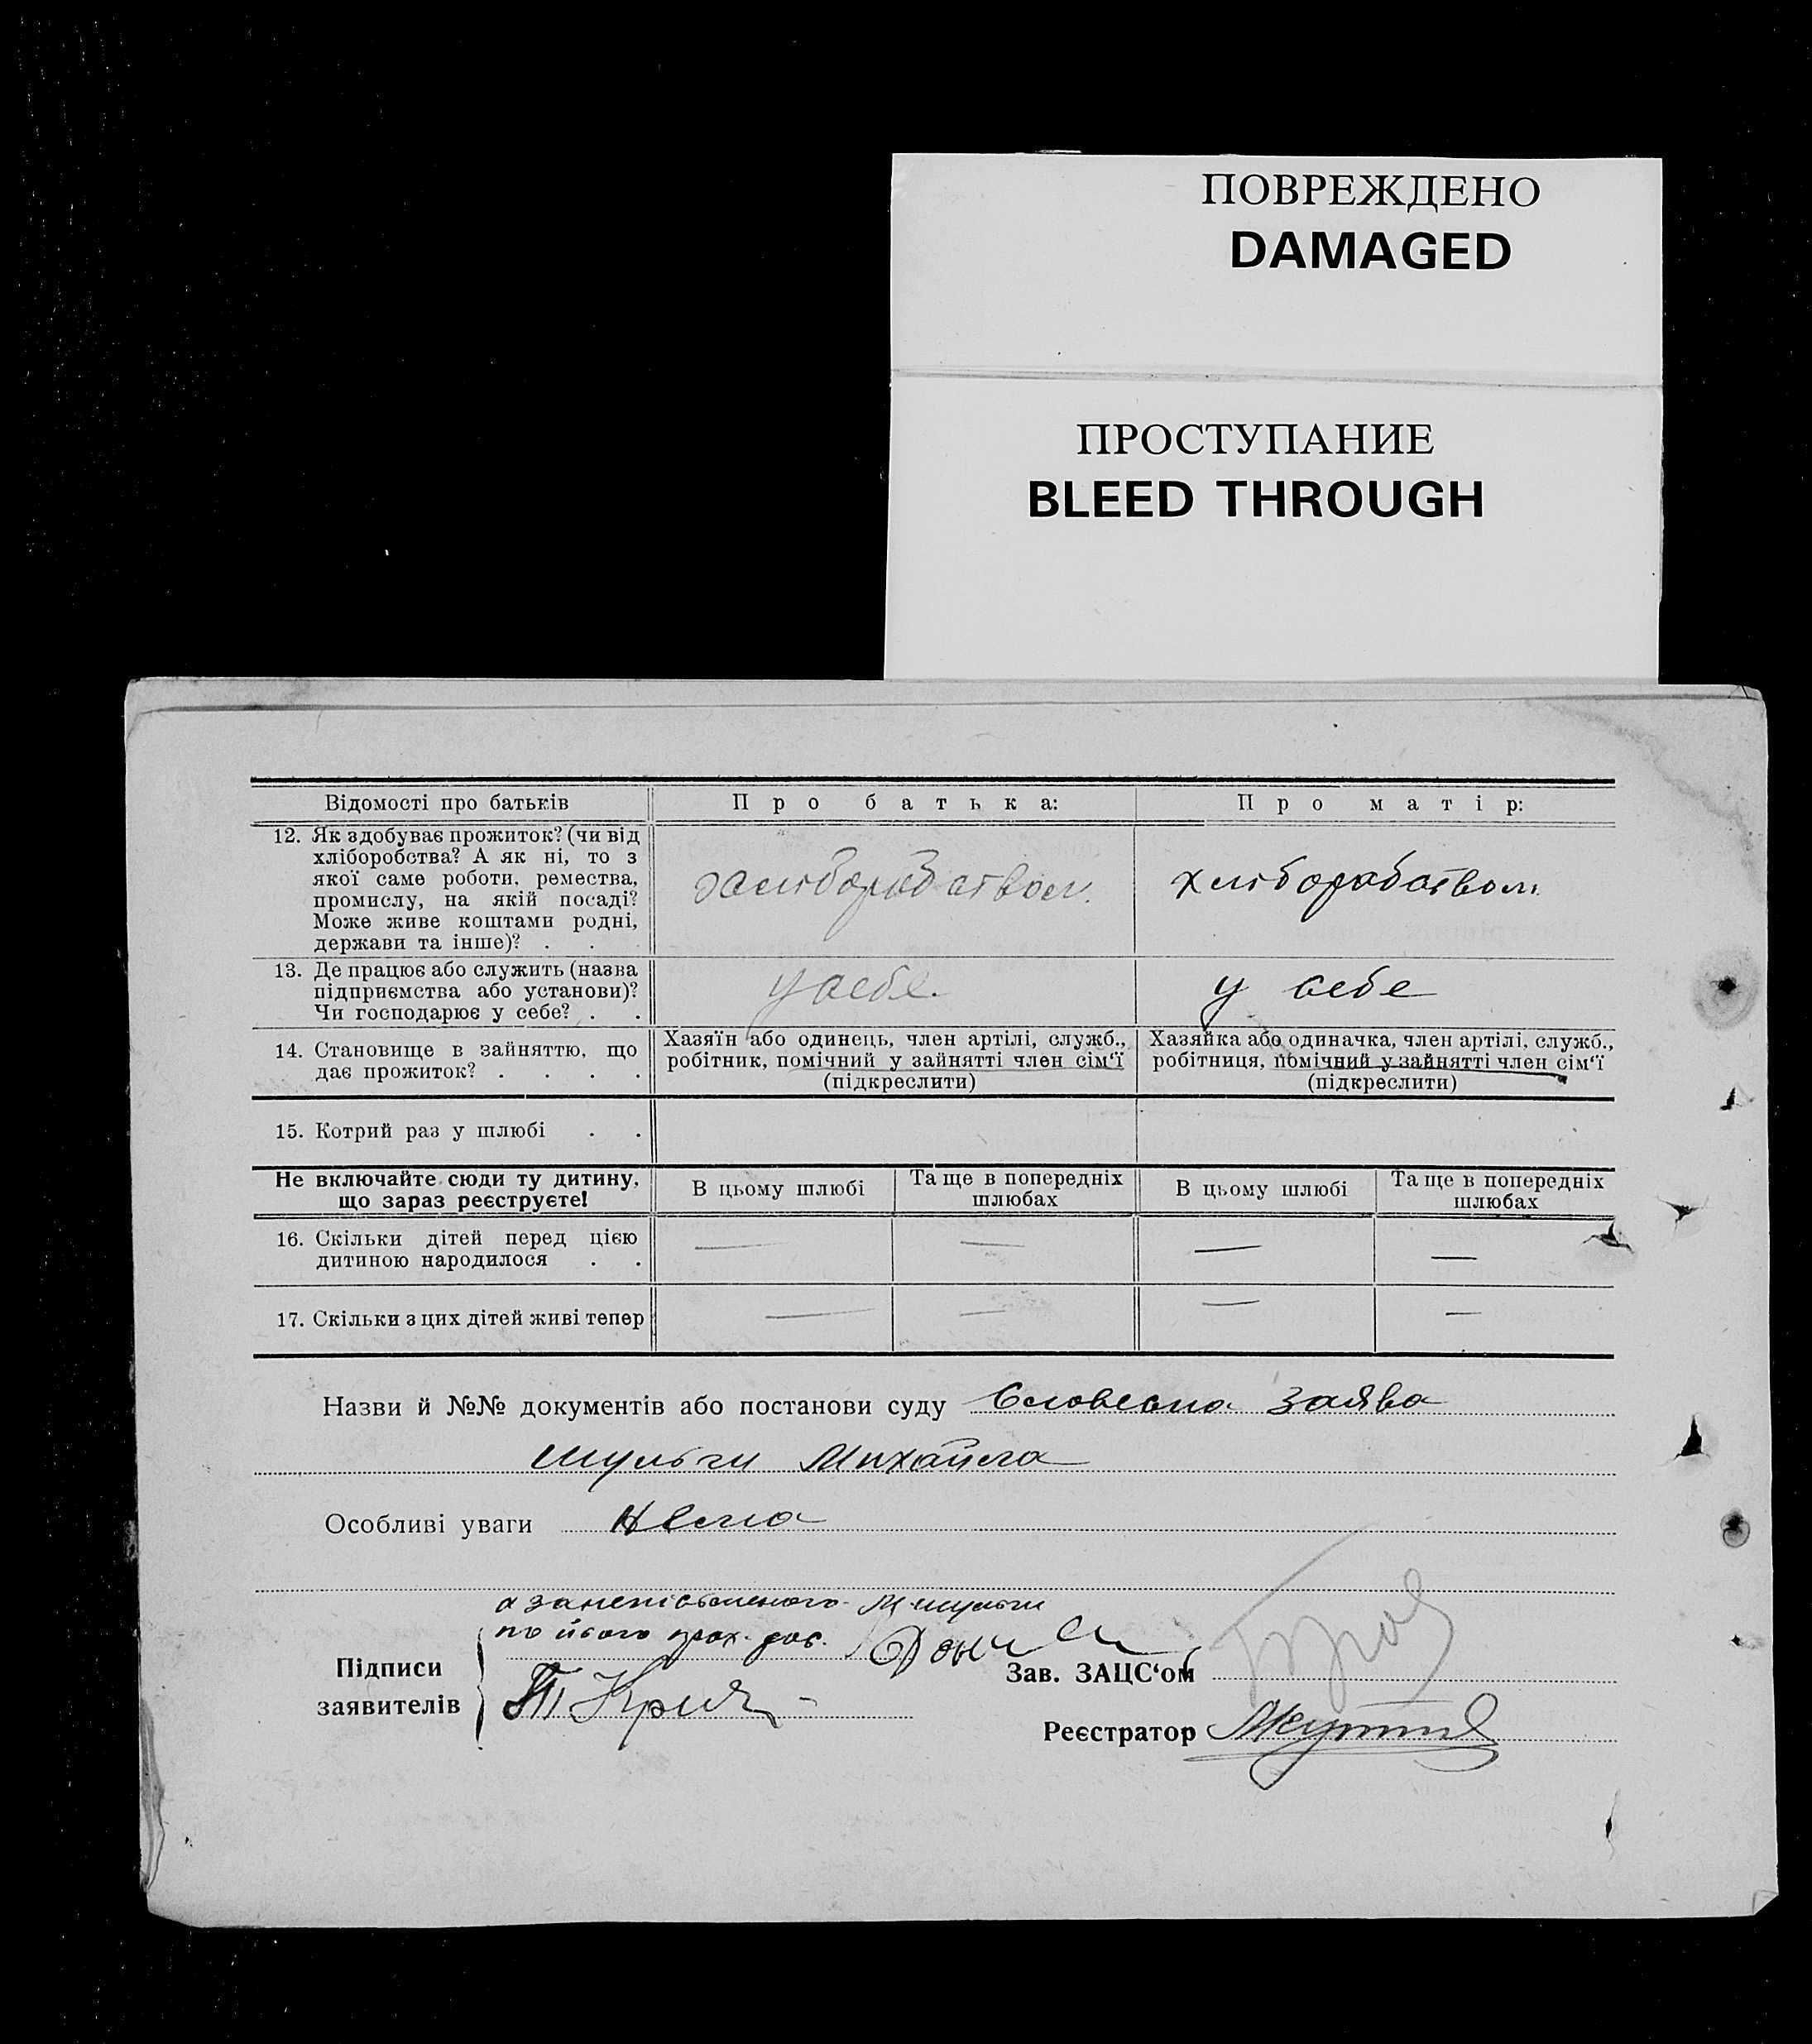 ПОВРЕЖДЕНО
DAMAGED
ПРОСТУПАНИЕ
BLEED THROUGH
Відомості про батьків
Про батька:
Про матір:
12. Як здобуває прожиток? (чи від
хліборобства? А як ні, то з
якої саме роботи, ремества,
промислу, на якій посаді?
Може живе коштами родні,
держави та інше)? . .
хліборобством.
хліборобством
13. Де працює або служить (назва
підприємства або установи)?
Чи господарює у себе? . .
у себе.
у себе
14. Становище в зайняттю, що
дає прожиток? . . . .
Хазяїн або одинець, член артілі, служб.,
робітник, помічний у зайнятті член сім‘ї
(підкреслити)
Хазяйка або одиначка, член артілі, служб.,
робітниця, помічний у зайнятті член сім‘ї
(підкреслити)
15. Котрий раз у шлюбі . .
Не включайте сюди ту дитину,
що зараз реєструєте!
В цьому шлюбі
Та ще в попередніх
шлюбах
В цьому шлюбі
Та ще в попередніх
шлюбах
16. Скільки дітей перед цією
дитиною народилося . .
— — — —
17. Скільки з цих дітей живі тепер
— — — —
Назви й №№ документів або постанови суду Словесна заява
Шульги Михайла
Особливі уваги Нема
а за неписьменого М. Шульги
по його прох.
Підписи
заявителів
Зав. ЗАЦС‘ом
Реєстратор